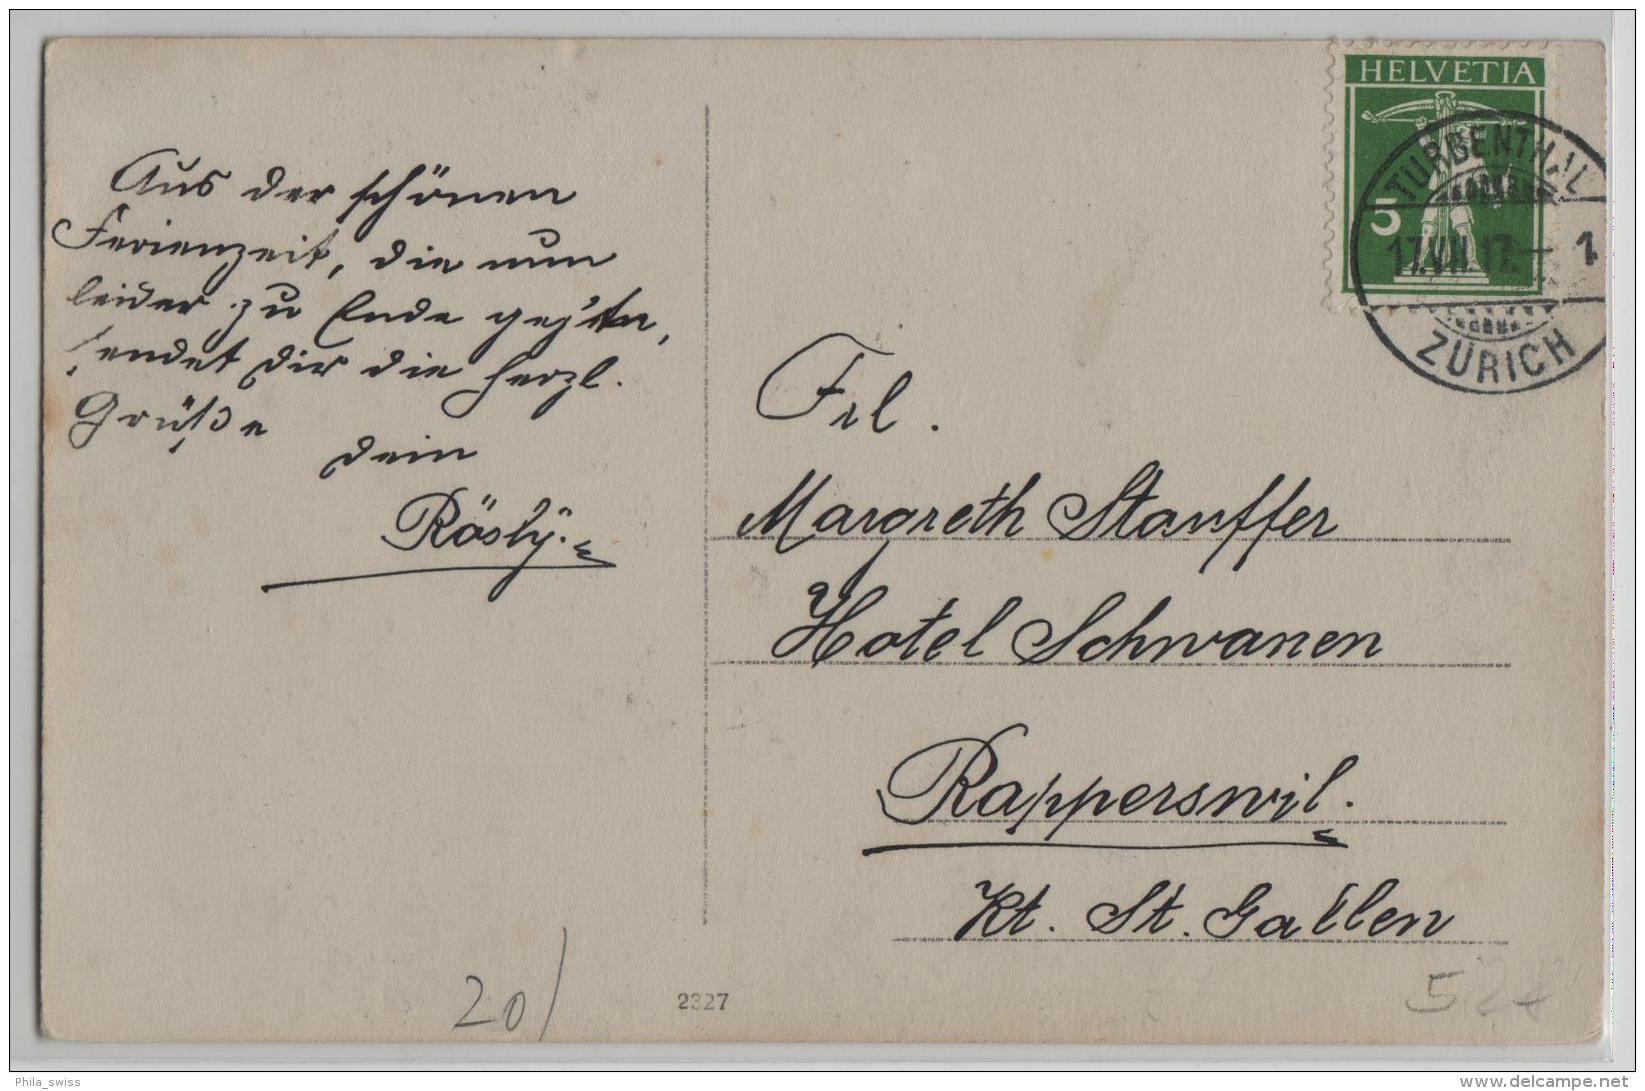 Aus der schönen
Ferienzeit, die nun
leider zu Ende geht,
sendet Dir die herzl.
Grüße
dein
Rösly.
HELVETIA
5
TURBENTHAL
17.VII.17.— 1
ZÜRICH
Frl.
Margreth Stauffer
Hotel Schwanen
Rapperswil.
Kt. St. Gallen
20/
2327
Phila_swiss
www.delcampe.net